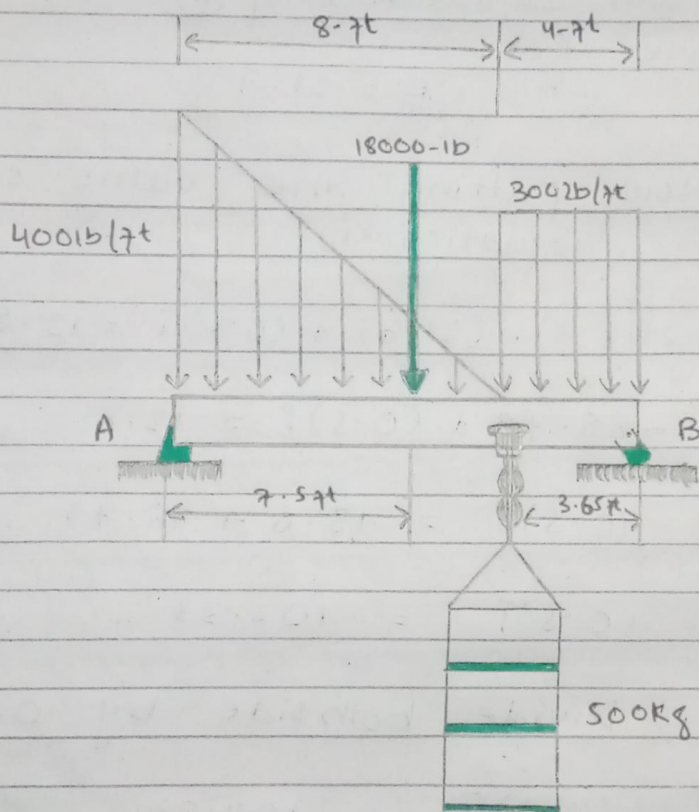 8-ft
4-ft
18000-lb
300lb/ft
400lb/ft
A
B
7.5ft
3.65ft
500kg